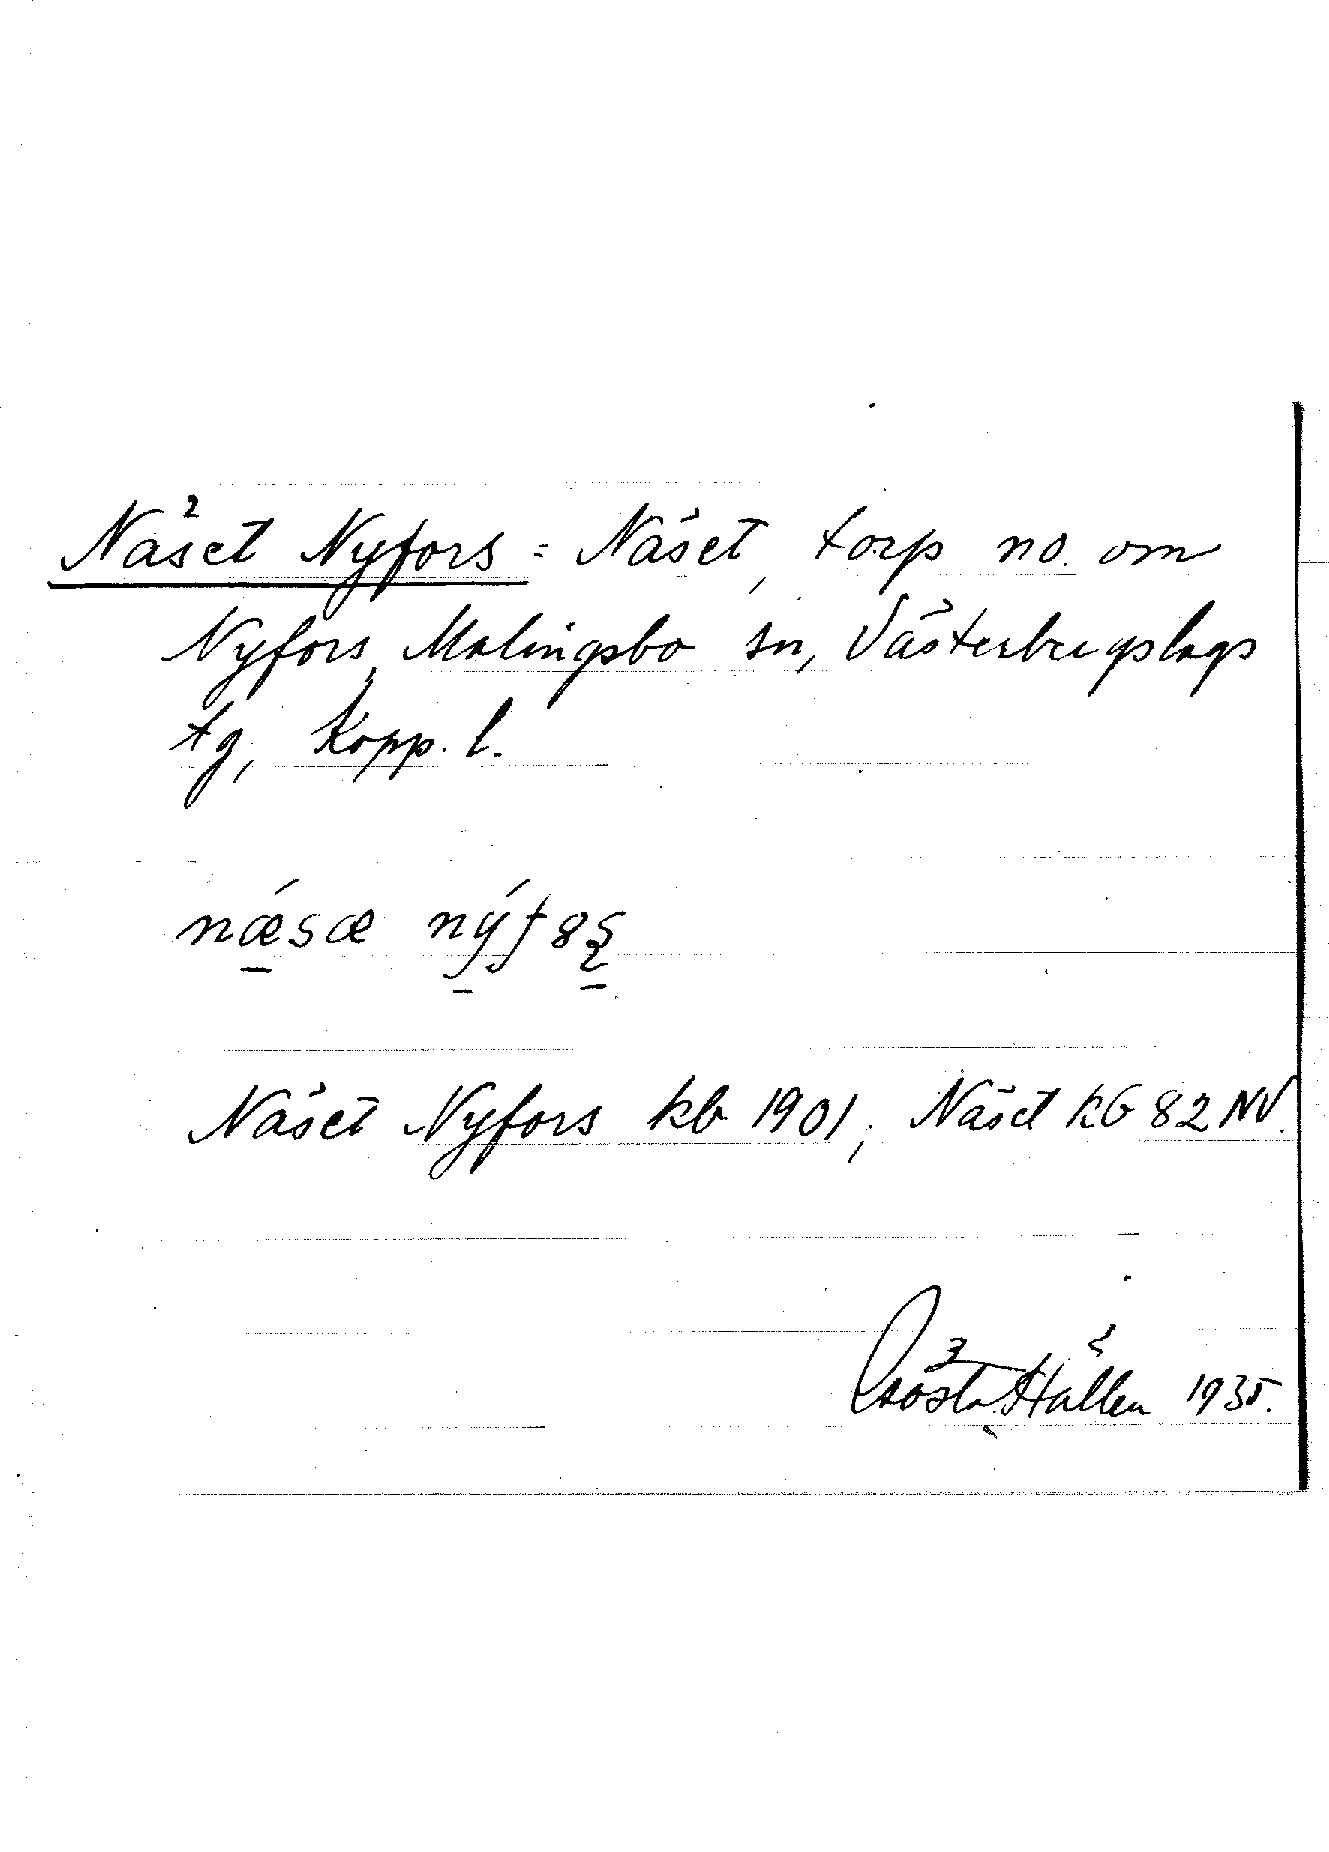 Näset Nyfors = Näset, torp no. om
Nyfors, Malingsbo sn, Västerbergslags
tg, Kopp. l.
næ̀sæ nýf8ş
Näset Nyfors kb 1901, Näset kb 82 NV.
Gösta Hallén 1935.